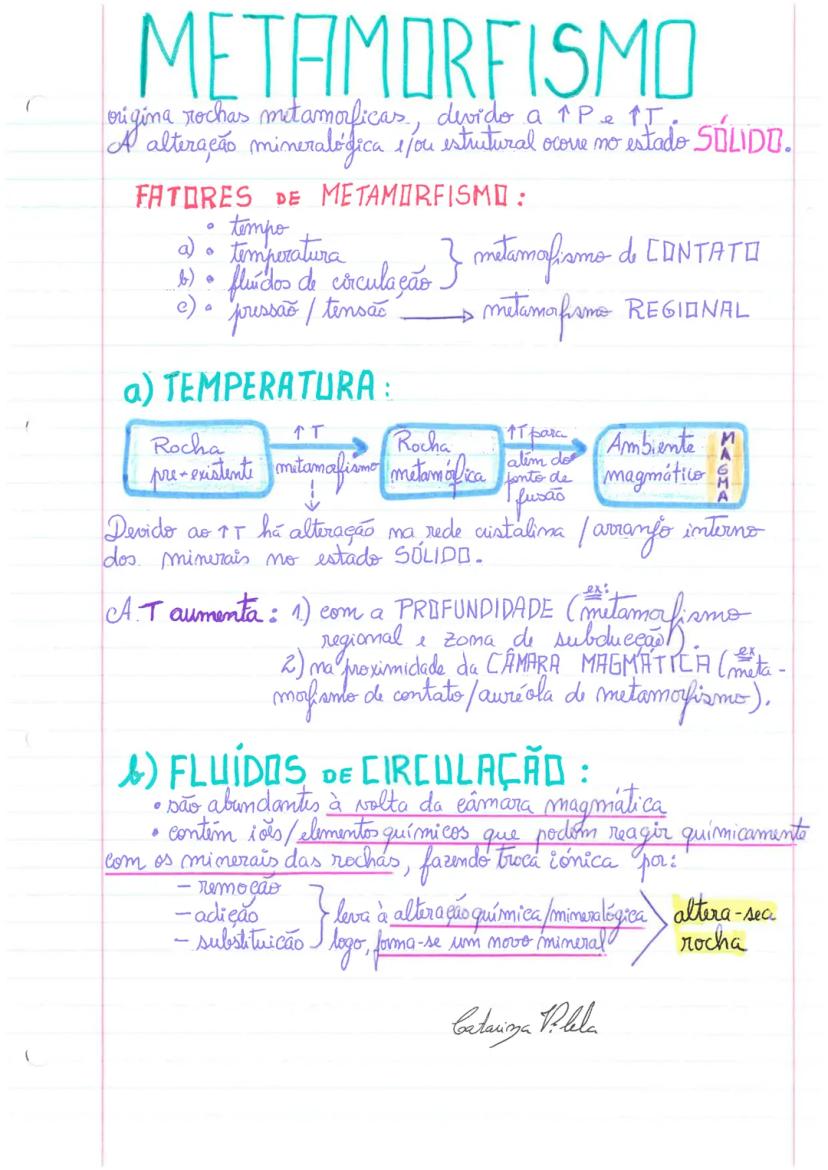 METAMORFISMO
origina rochas metamorficas, devido a ↑P e ↑T.
A alteração mineralógica e/ou estrutural ocorre no estado SÓLIDO.
FATORES DE METAMORFISMO:
• tempo
a) • temperatura
b) • fluídos de circulação } metamorfismo de CONTATO
c) • pressão / tensão → metamorfismo REGIONAL
a) TEMPERATURA:
Rocha pre-existente
↑T
metamorfismo
Rocha metamórfica
↑T para
além do
ponto de
fusão
Ambiente magmático
MAGMA
Devido ao ↑T há alteração na rede cristalina / arranjo interno
dos minerais no estado SÓLIDO.
A T aumenta: 1) com a PROFUNDIDADE (ex: metamorfismo
regional e zona de subducção).
2) na proximidade da CÂMARA MAGMÁTICA (ex meta-
morfismo de contato/auréola de metamorfismo).
b) FLUÍDOS DE CIRCULAÇÃO:
• são abundantes à volta da câmara magmática
• contêm iões/elementos químicos que podem reagir químicamente
com os minerais das rochas, fazendo troca iónica por:
– remoção
– adição } leva à alteração química/mineralógica
– substituição logo, forma-se um novo mineral
altera-se a
rocha
Catarina